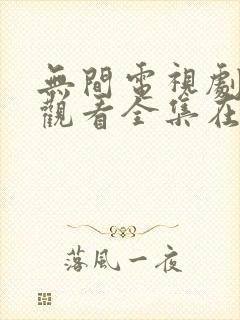 無間電視劇
觀看全集在
落風一夜